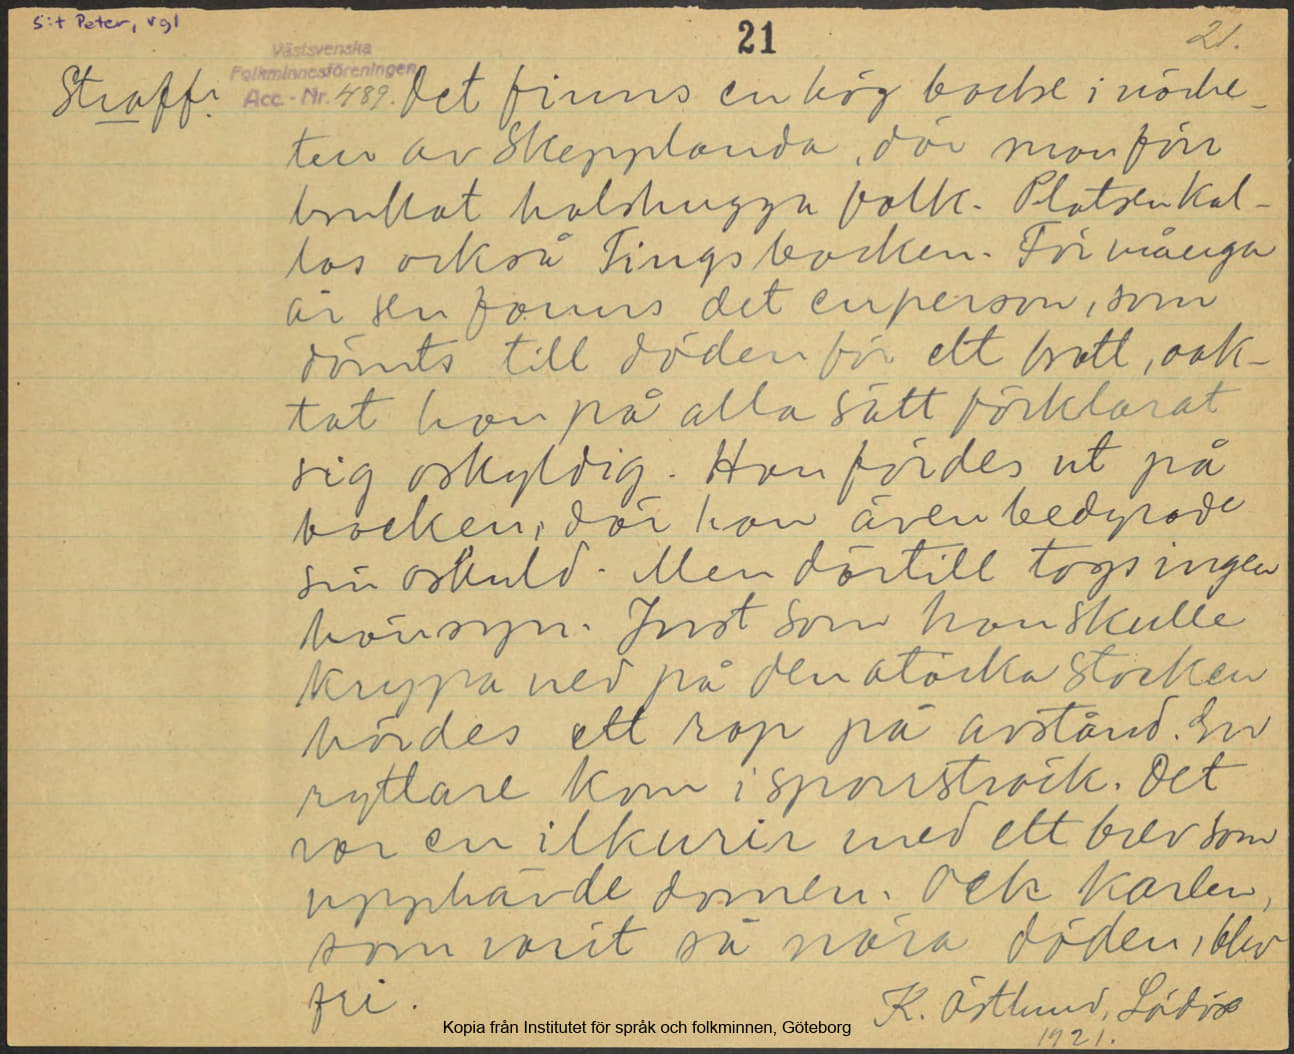 S:t Peter, vgl
21
21.
Västsvenska
Folkminnesföreningen
Acc. - Nr. 489.
Straff. Det finns en hög backe i närhe-
ten av Skepplanda, där man förr
brukat halshugga folk. Platsen kal-
las också Tingsbacken. För många
år sen fanns det en person, som
dömts till döden för ett brott, oak-
tat han på alla sätt förklarat
sig oskyldig. Han fördes ut på
backen, där han även bedyrade
sin oskuld. Men därtill togs ingen
hänsyn. Just som han skulle
krypa ned på den stocken
hördes ett rop på avstånd. En
ryttare kom i sporrsträck. Det
var en ilkurir med ett brev som
upphävde domen. Och karlen,
som varit så nära döden, blev
fri.
K. Östlund, Lödöse
1921.
Kopia från Institutet för språk och folkminnen, Göteborg